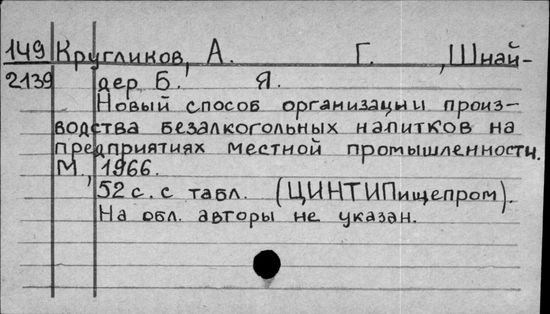 149 Кругликов, А. Г. , Шнай-
2139 дер Б. Я.
Новый способ организации произ-
водства безалкогольных напитков на
предприятиях местной промышленности.
М., 1966.
52 с. с табл. (ЦИНТИПищепром).
На обл. авторы не указан.